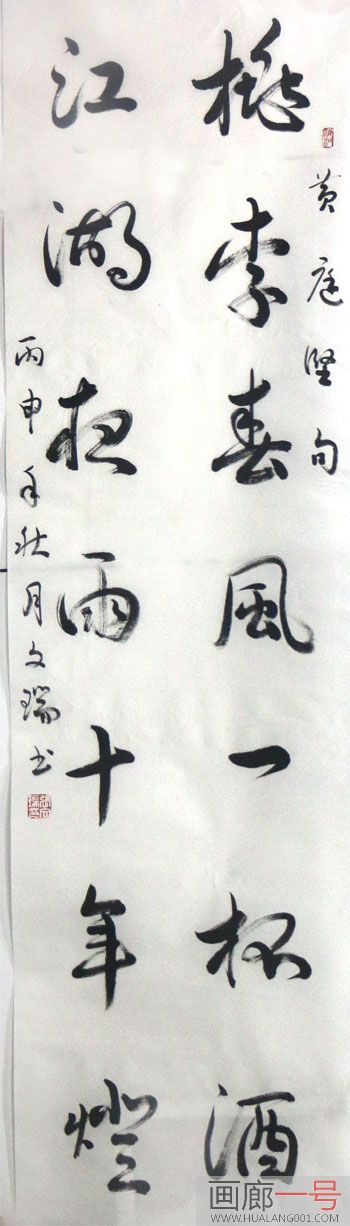 黄庭堅句
桃李春風一杯酒
江湖夜雨十年燈
丙申年秋月文瑞书
画廊一号
WWW.HUALANG001.COM